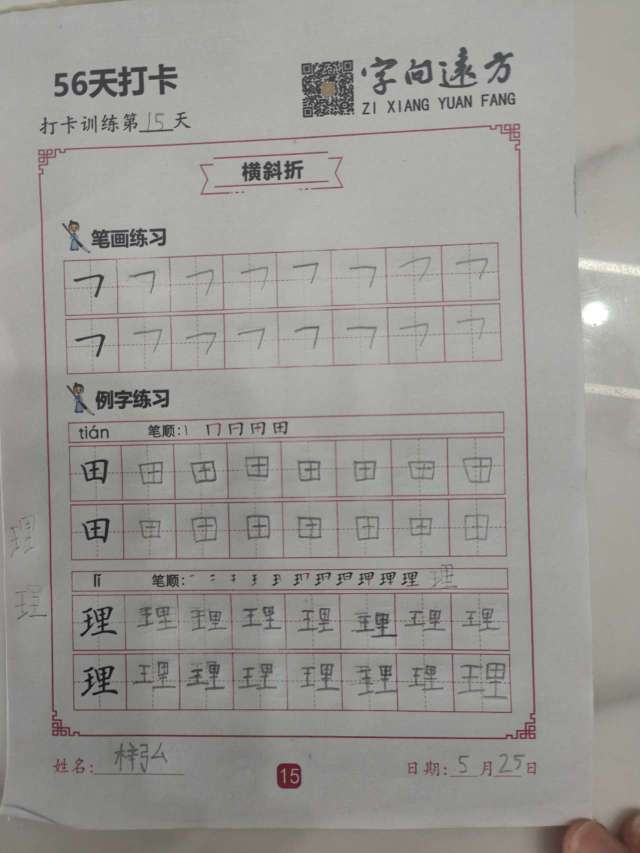 56天打卡
字向远方
ZI XIANG YUAN FANG
打卡训练第15天
横斜折
笔画练习
㇇ ㇇ ㇇ ㇇ ㇇ ㇇ ㇇ ㇇
㇇ ㇇ ㇇ ㇇ ㇇ ㇇ ㇇ ㇇
例字练习
tián 笔顺: 丨 冂 冃 田 田
田 田 田 田 田 田 田 田
田 田 田 田 田 田 田 田
lǐ 笔顺: 理 理
理 理 理 理 理 理 理 理
理 理 理 理 理 理 理 理
理
理
姓名: 梓弘
15
日期: 5月25日